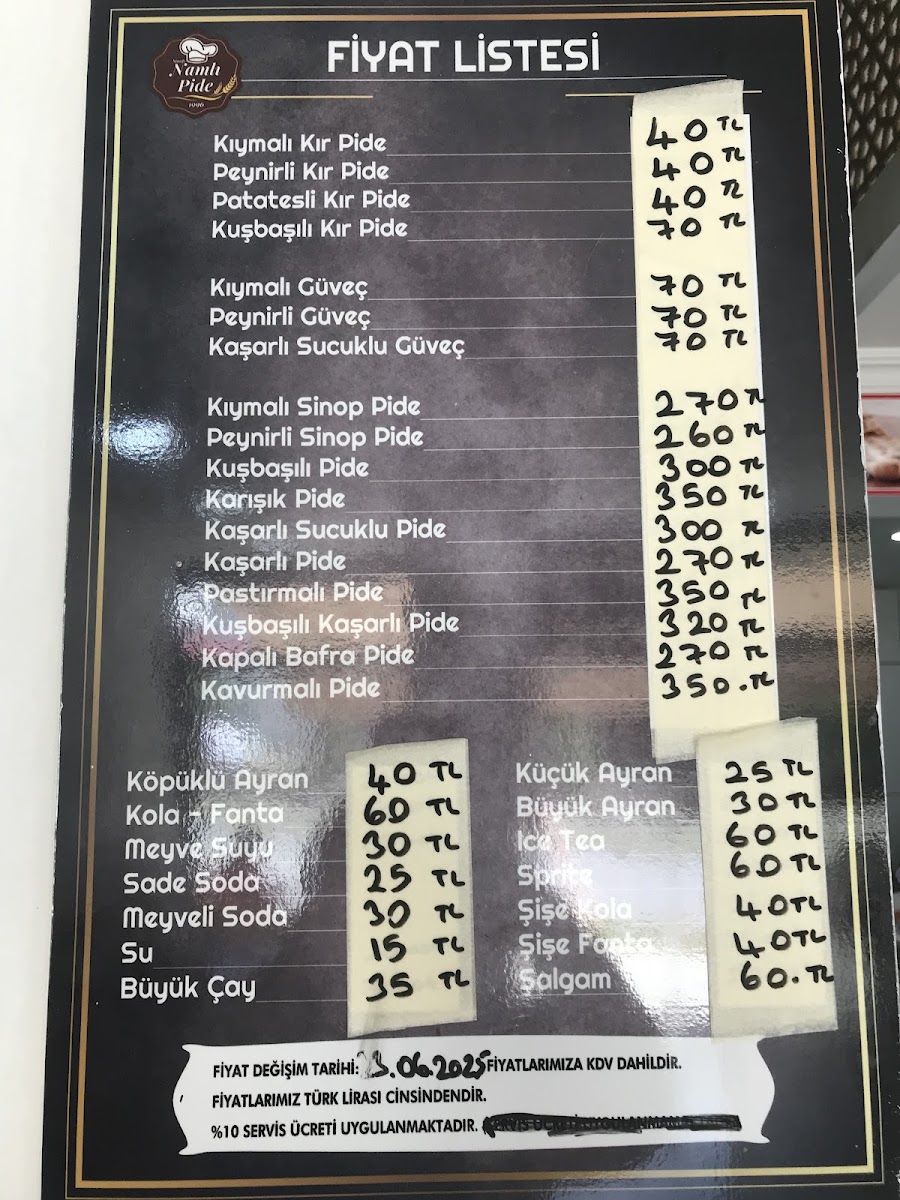 Namlı
Pide
1996
FİYAT LİSTESİ
Kıymalı Kır Pide 40 TL
Peynirli Kır Pide 40 TL
Patatesli Kır Pide 40 TL
Kuşbaşılı Kır Pide 70 TL
Kıymalı Güveç 70 TL
Peynirli Güveç 70 TL
Kaşarlı Sucuklu Güveç 70 TL
Kıymalı Sinop Pide 270 TL
Peynirli Sinop Pide 260 TL
Kuşbaşılı Pide 300 TL
Karışık Pide 350 TL
Kaşarlı Sucuklu Pide 300 TL
Kaşarlı Pide 270 TL
Pastırmalı Pide 350 TL
Kuşbaşılı Kaşarlı Pide 320 TL
Kapalı Bafra Pide 270 TL
Kavurmalı Pide 350.TL
Köpüklü Ayran 40 TL
Kola - Fanta 60 TL
Meyve Suyu 30 TL
Sade Soda 25 TL
Meyveli Soda 30 TL
Su 15 TL
Büyük Çay 35 TL
Küçük Ayran 25 TL
Büyük Ayran 30 TL
Ice Tea 60 TL
Sprite 60 TL
Şişe Kola 40TL
Şişe Fanta 40TL
Şalgam 60.TL
FİYAT DEĞİŞİM TARİHİ: 23.06.2025 FİYATLARIMIZA KDV DAHİLDİR.
FİYATLARIMIZ TÜRK LİRASI CİNSİNDENDİR.
%10 SERVİS ÜCRETİ UYGULANMAKTADIR.